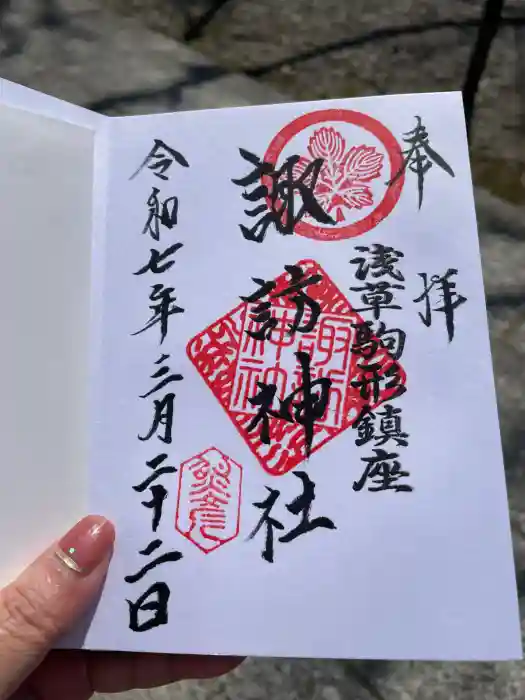 奉拝
浅草駒形鎮座
諏訪神社
令和七年三月二十二日